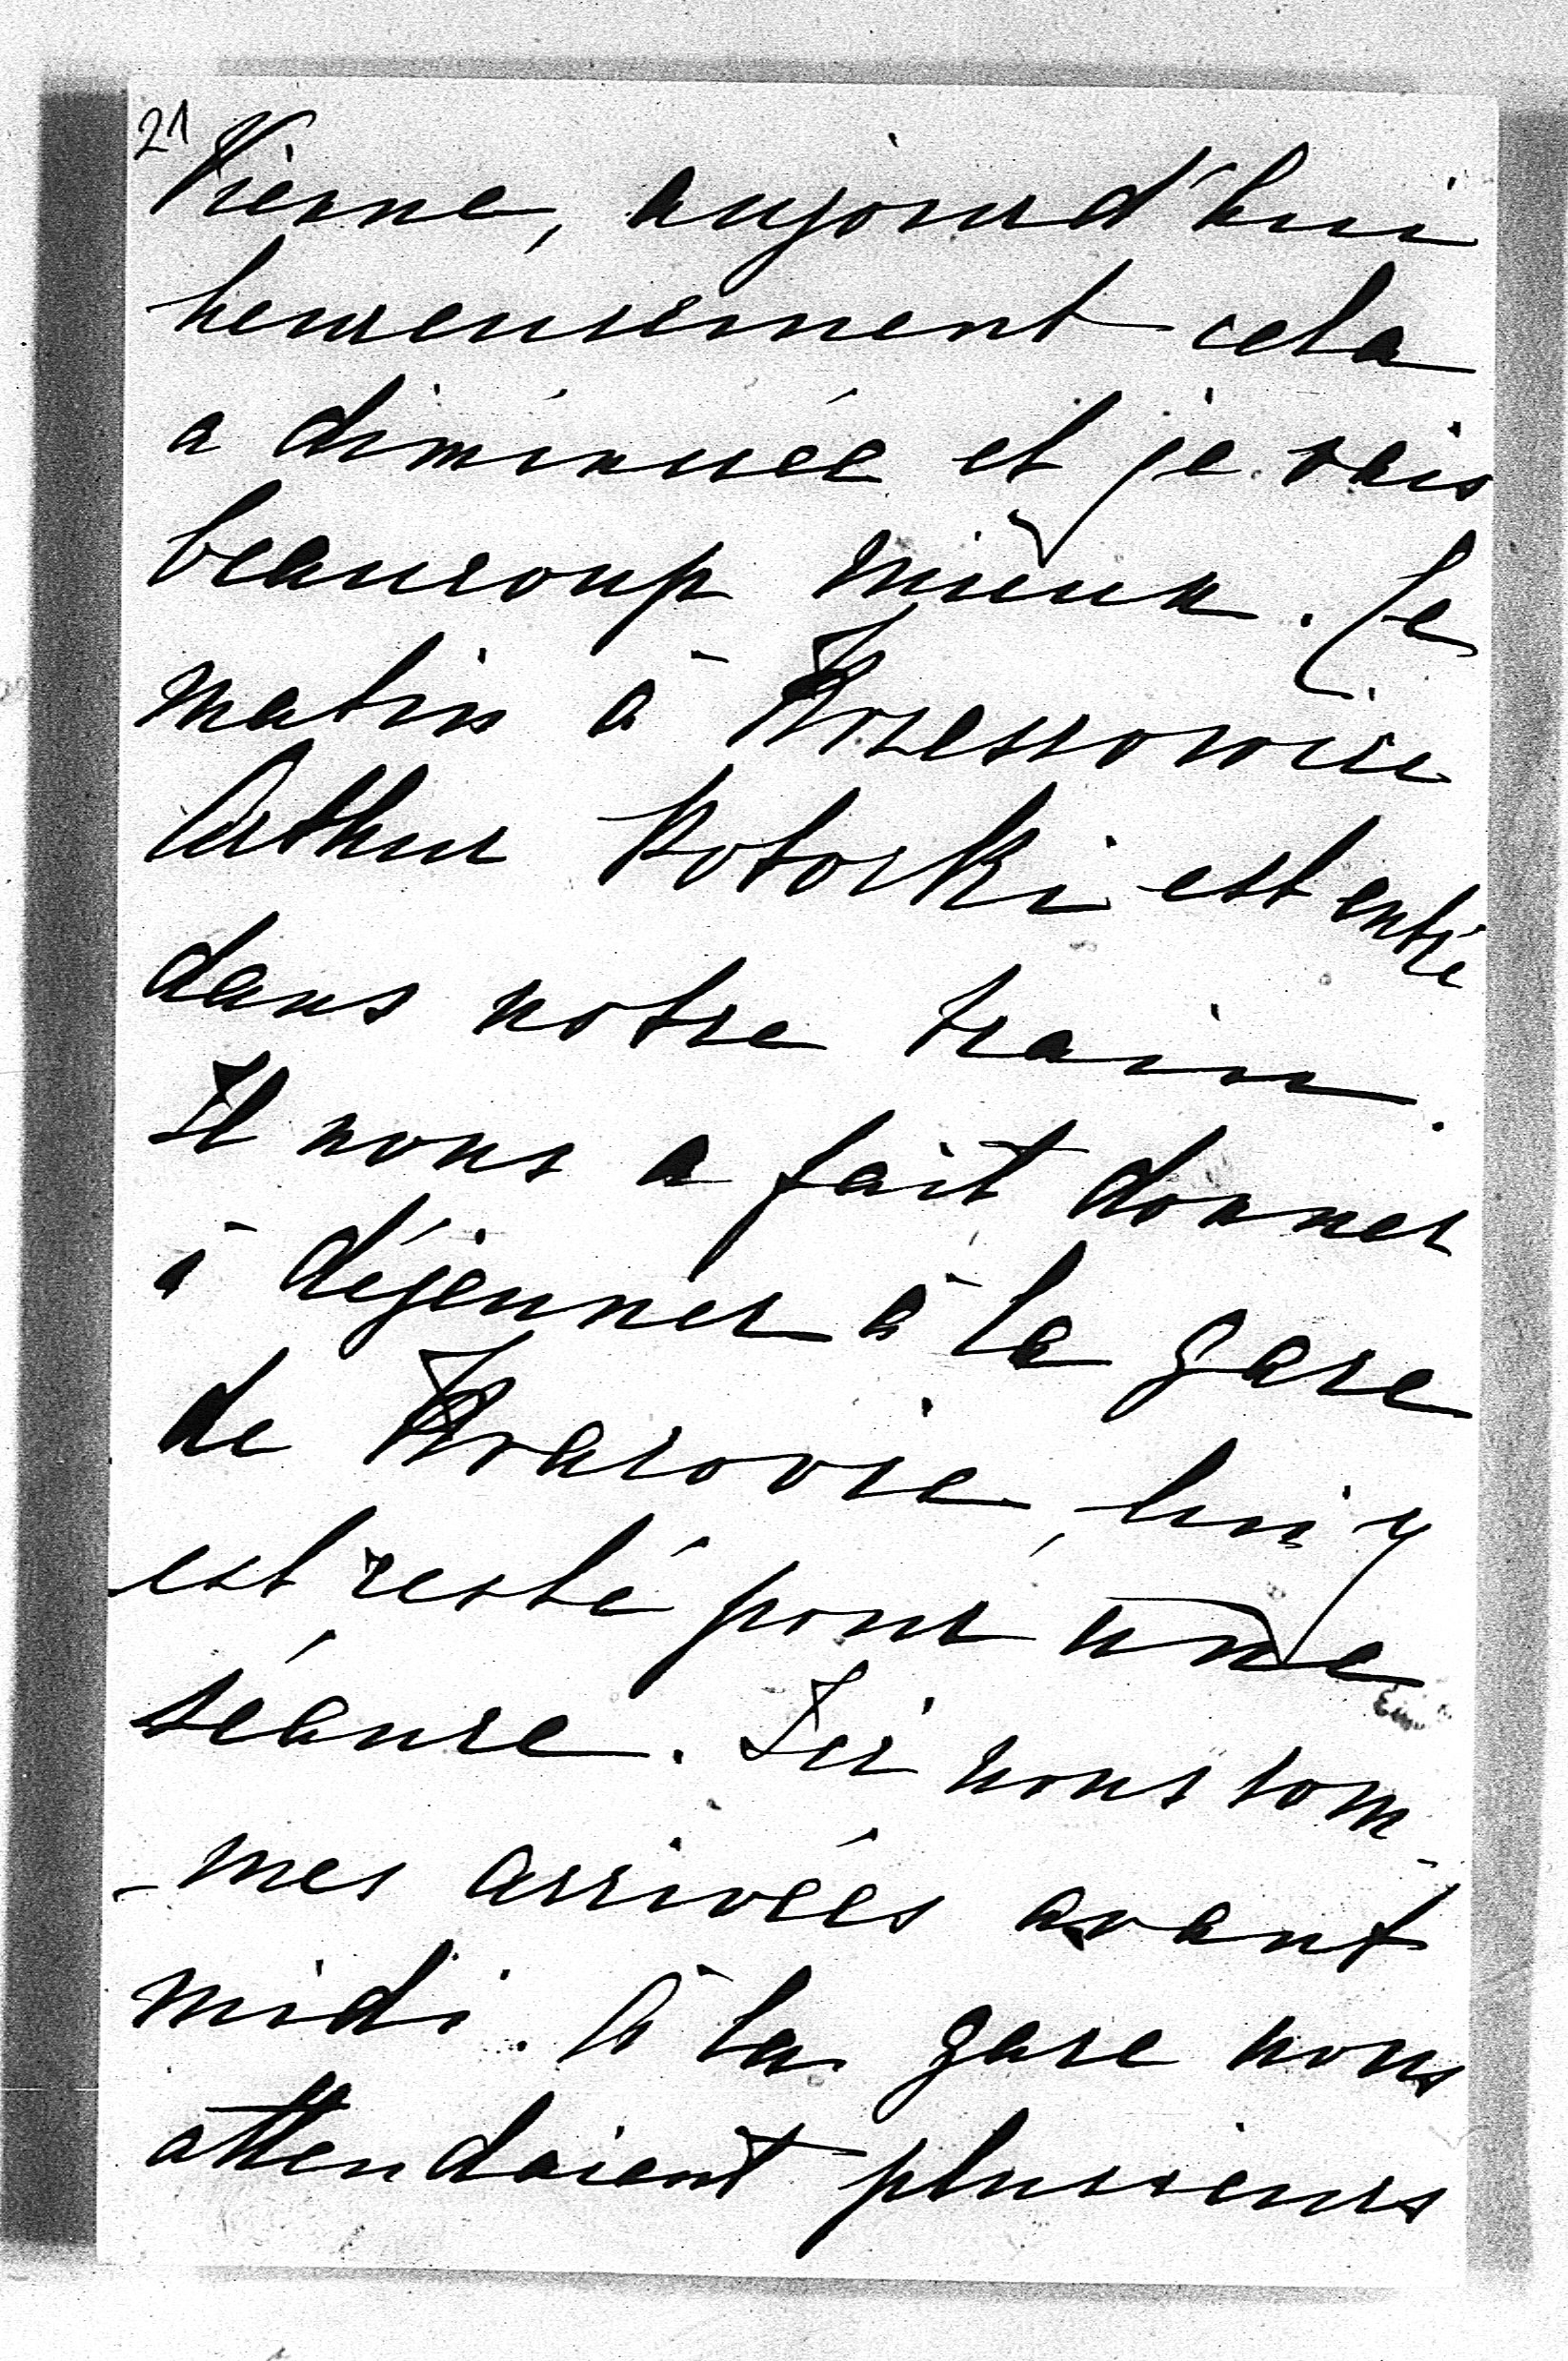 21
Vienne, aujourd'hui
heureusement cela
a diminuée et je vais
beaucoup mieux. Le
matin à Krzessowice
Arthur Potocki est entré
dans notre train.
Il nous a fait donner
à déjeuner à la gare
de Kracovie, lui y
est resté pour une
séance. Ici nous som-
-mes arrivées avant
midi. À la gare nous
attendaient plusieurs